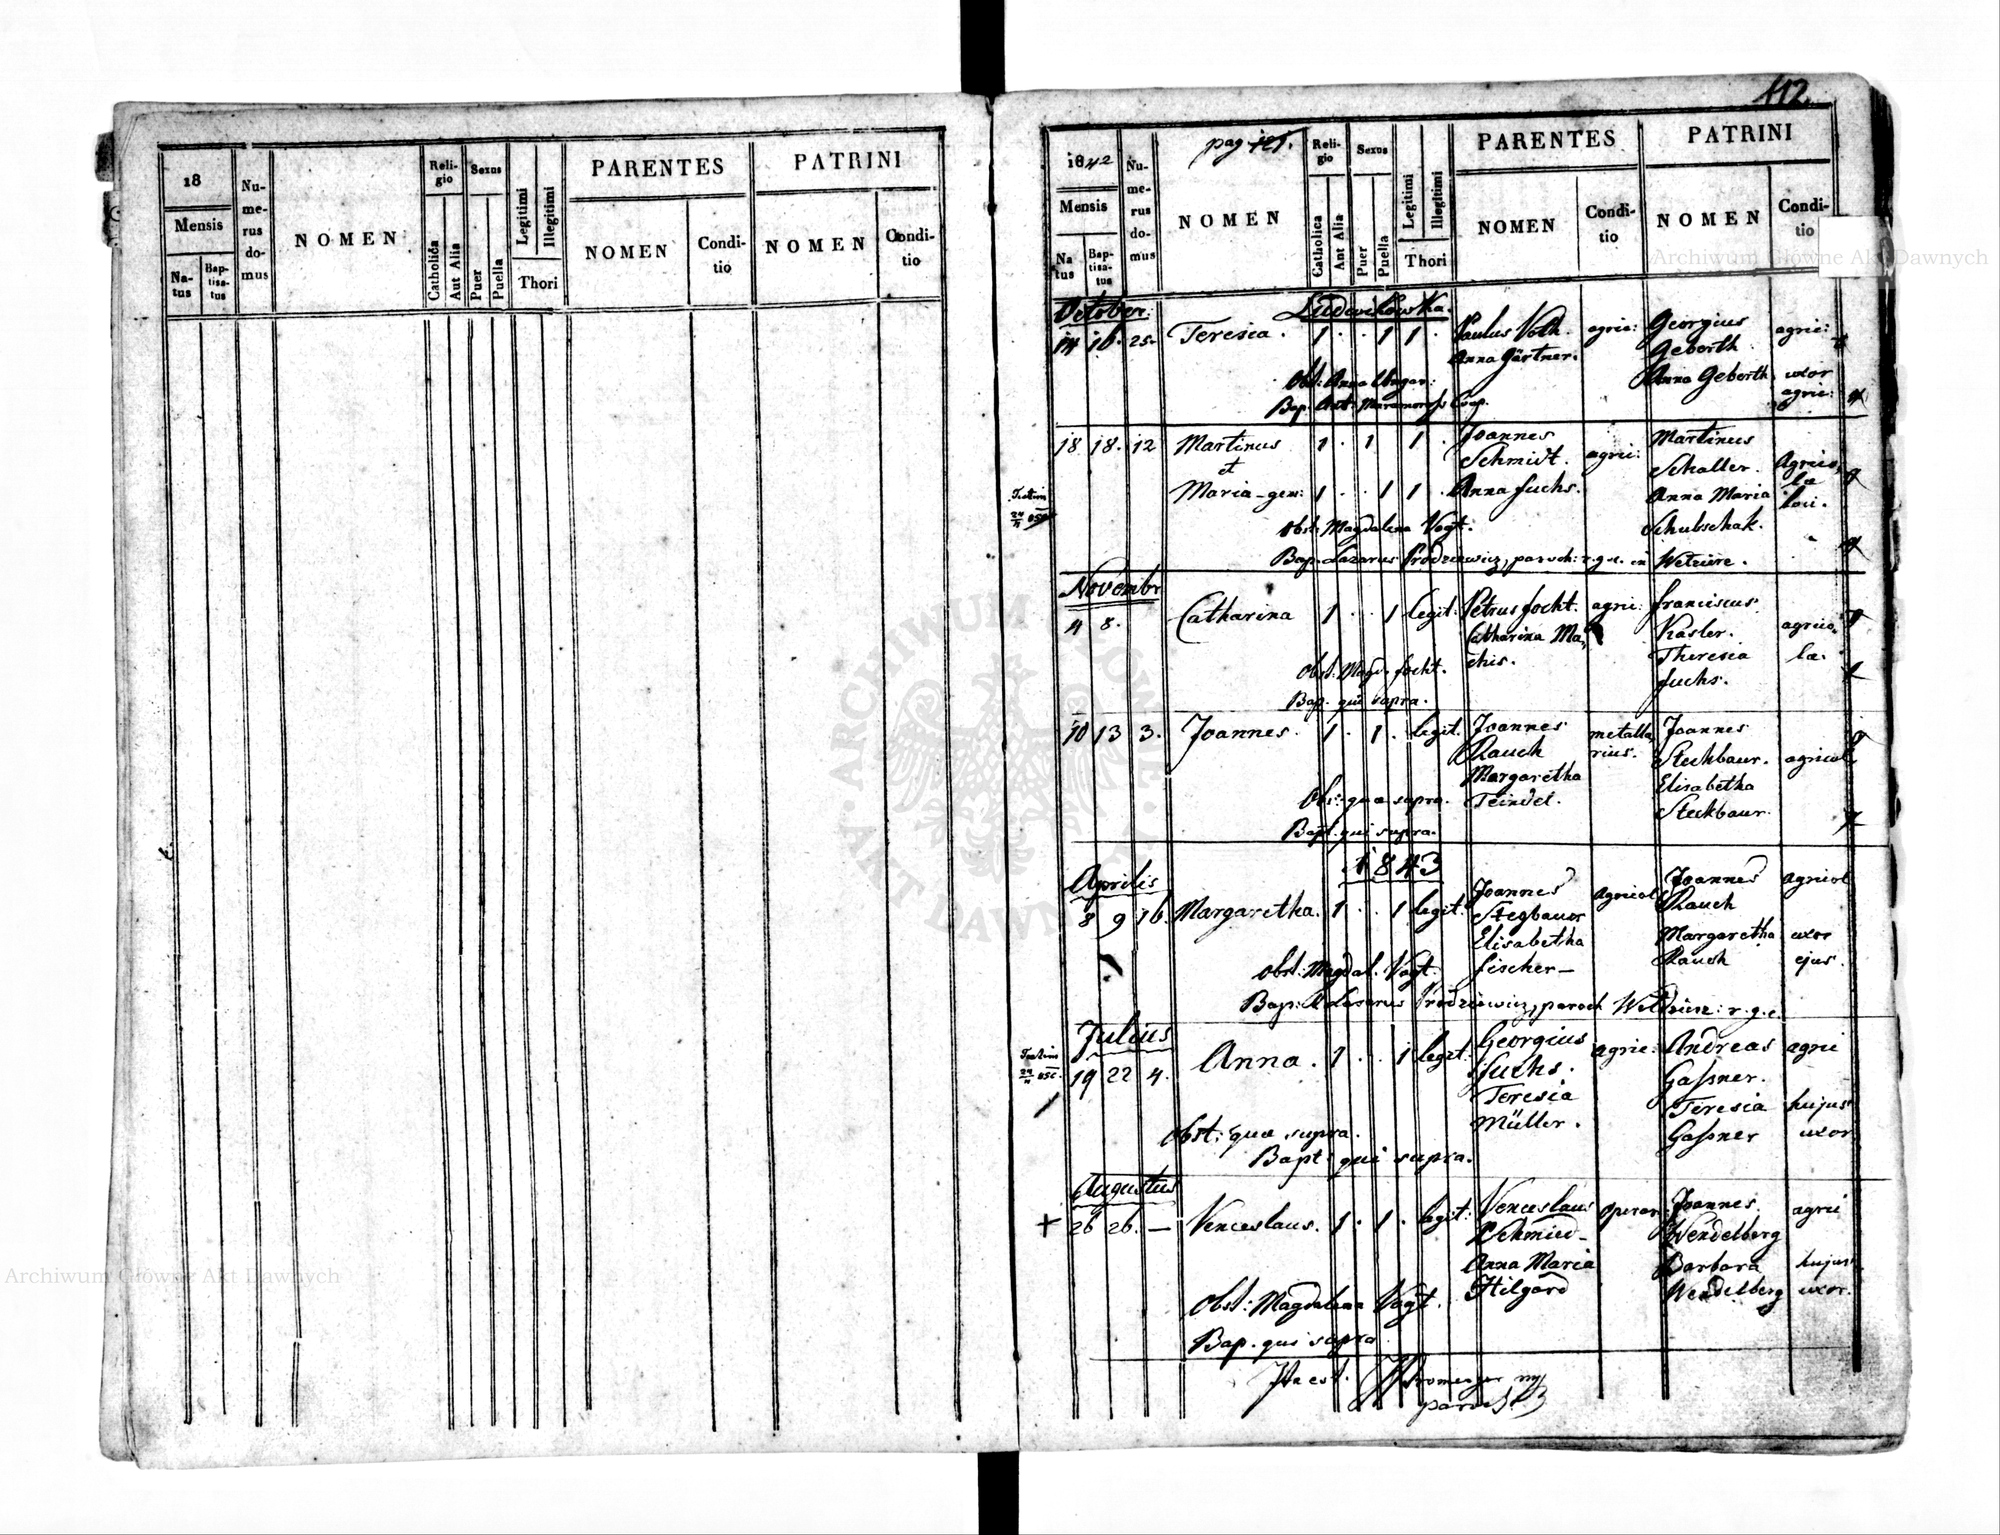 18
Mensis
Na-
tus
Bap-
tisa-
tus
Nu-
me-
rus
do-
mus
NOMEN
Reli-
gio
Catholica
Aut Alia
Sexus
Puer
Puella
Legitimi
Illegitimi
Thori
PARENTES
NOMEN
Condi-
tio
PATRINI
NOMEN
Condi-
tio
112.
1842
Mensis
Na-
tus
Bap-
tisa-
tus
Nu-
me-
rus
do-
mus
pag
NOMEN
Reli-
gio
Catholica
Aut Alia
Sexus
Puer
Puella
Legitimi
Illegitimi
Thori
PARENTES
NOMEN
Condi-
tio
PATRINI
NOMEN
Condi-
tio
October: Ludwikowka.
14 16. 25. Teresia. 1 . . 1 1 . Paulus Voth. agric: Georgius agric:
Anna Gärtner. Geborth
Obst: Anna Ungar: Anna Geborth uxor
Bap. Ant: Maramoross Coop. agric:
18 18. 12 Martinus 1 . 1 1 . Joannes Martinus
et Schmidt. agric: Schaller. Agrico,
Maria-gem: 1 . . 1 1 . Anna Fuchs. Anna Maria læ
Obst: Magdalena Vogt. Schubschak.
Bap. Lazarus Prodziewicz, paroch: r.g.c. in
Novembr
4 8. Catharina 1 . . 1 legit. Petrus Focht. agric: Franciscus
Catharina Ma, Kasler. agrico,
chis. Theresia læ.
Obst: Magd. Focht. Fuchs.
Bap. qui supra.
10 13 3. Joannes. 1 . 1 . legit. Joannes metalla, Joannes
Rauch rius. Steckbaur. agricol
Margaretha Elisabetha
Obs: quæ supra. Teindel. Steckbaur.
Bapt. qui supra.
1843
Aprilis
8 9 16. Margaretha. 1 . . 1 legit. Joannes Agricol Joannes agricol
Stegbauer Rauch
Elisabetha Margaretha uxor
Fischer- Rauch ejus.
Obst: Magdal. Vogt
Bap: Lazarus Prodziewicz, paroch r.g.c.
Julius
19 22 4. Anna. 1 . . 1 legit. Georgius agric: Andreas agric
Fuchs. Gaßner.
Teresia Teresia hujus
Müller. Gaßner uxor
Obst: quæ supra.
Bapt: qui supra.
Augustus
+ 26 26. — Venceslaus. 1 . 1 . legit: Venceslaus operar Joannes agric
Schmied- Wendelberg
Anna Maria Barbara hujus
Hilgard Wendelberg uxor.
Obst: Magdalena Vogt.
Bap. qui supra
Ita est.
Archiwum Główne Akt Dawnych
Archiwum Główne Akt Dawnych
ARCHIWUM GŁÓWNE AKT DAWNYCH